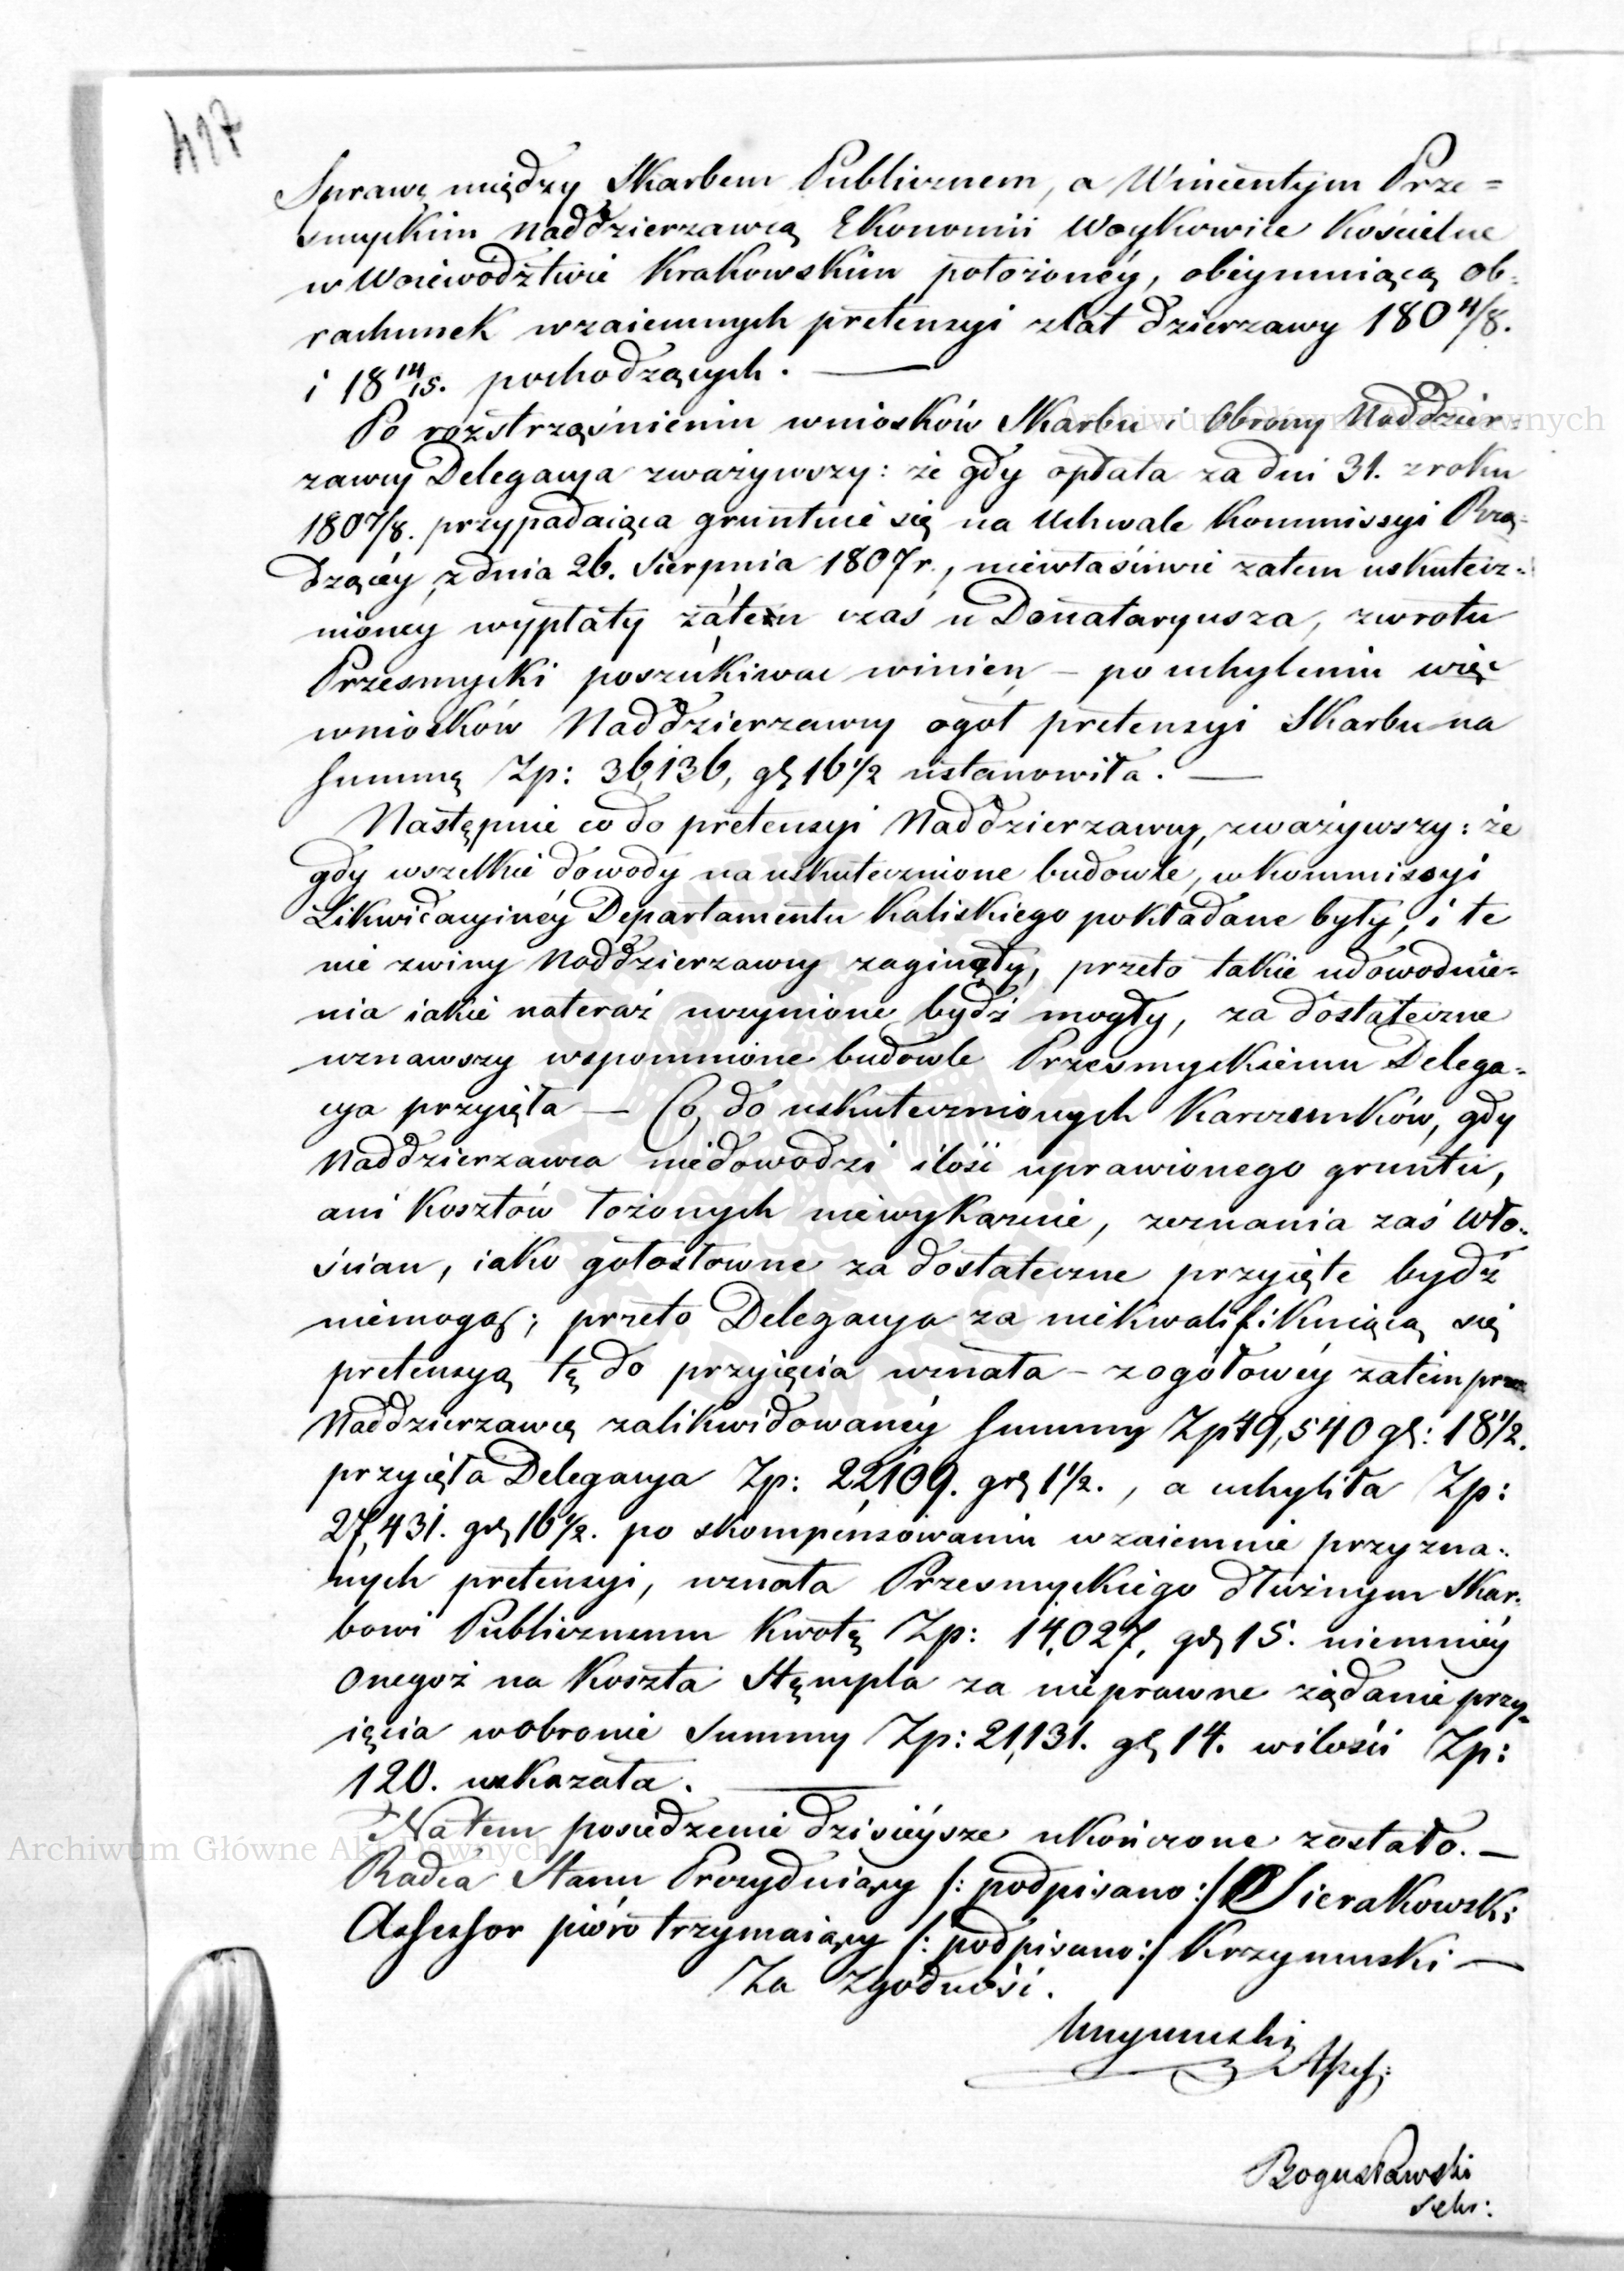 417
Sprawę między Skarbem Publicznem, a Wincentym Prze=
smyckim Naddzierzawcą Ekonomii Woykowice Kościelne
w Woiewodztwie Krakowskim położoney, obeymuiącą ob-
rachunek wzaiemnych pretensyi z lat dzierzawy 180 7/8.
i 18 14/15. pochodzących. —
Po roztrząśnieniu wniosków Skarbu i Obrony Naddzier-
zawcy Delegacya zważywszy: że gdy opłata za dni 31. z roku
180 7/8. przypadaiąca gruntuie się na Uchwale Kommissyi Rzą-
dzącéy z dnia 26. Sierpnia 1807 r., niewłaściwie zatem uskutecz-
nionéy wypłaty zatem czas u Donataryusza, zwrotu
Przesmycki poszukiwać winien, – po uchyleniu więc
wniosków Naddzierzawcy ogół pretensyi Skarbu na
Summę Zp: 36,136, gr 16 1/2 ustanowiła. —
Następnie co do pretensyi Naddzierzawcy, zważywszy: że
gdy wszelkie dowody na uskutecznione budowle, w Kommissyi
Likwidacyinéy Departamentu Kaliskiego pokładane były, i te
nie z winy Naddzierzawcy zaginęły, przeto takie udowodnie-
nia iakie na teraz uczynione bydź mogły, za dostateczne
uznawszy wspomnione budowle Przesmyckiemu Delega-
cya przyięła — Co do uskutecznionych Karczunków, gdy
Naddzierzawca niedowodzi ilość uprawionego gruntu,
ani Kosztów łożonych niewykazuie, zeznania zaś Wło-
ścian, iako gołosłowne za dostateczne przyięte bydź
niemogą; przeto Delegacya za niekwalifikuiącą się
pretensyą tę do przyięcia uznała – z ogółowéy zatem przez
Naddzierzawcę zalikwidowanéy Summy Zp 49,540 gr: 18 1/2.
przyięła Delegacya Zp: 22,109. gr 1 1/2., a uchyliła Zp:
27,431. gr 16 1/2. po skompensowaniu wzaiemnie przyzna-
nych pretensyi, uznała Przesmyckiego dłużnym Skar-
bowi Publicznemu Kwotę Zp: 14,027, gr 15. niemniéy
onegoż na Koszta Stęmpla za nieprawne żądanie przy-
ięcia w Obronie Summy Zp: 21,131. gr 14. w ilości Zp:
120. wskazała. —
Na tem posiedzenie dzisiéysze ukończone zostało. —
Radca Stanu Prezyduiący /: podpisano :/ Sierakowski
Assessor pióro trzymaiący /: podpisano :/ Krzymuski —
Za Zgodność.
Krzymuski
Assess:
Bogusławski
Sekr:
Archiwum Główne Akt Dawnych
Archiwum Główne Akt Dawnych